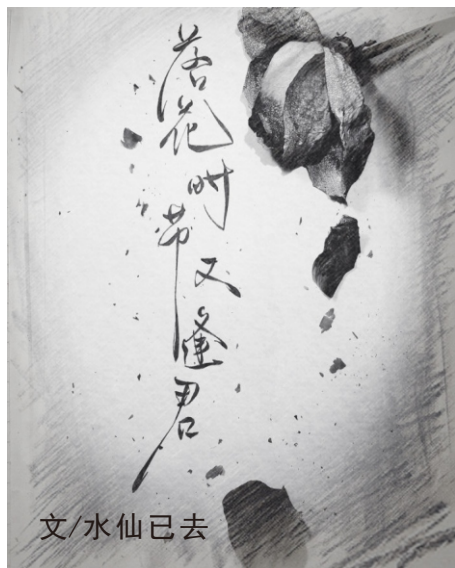 落花时节又逢君
文/水仙已去